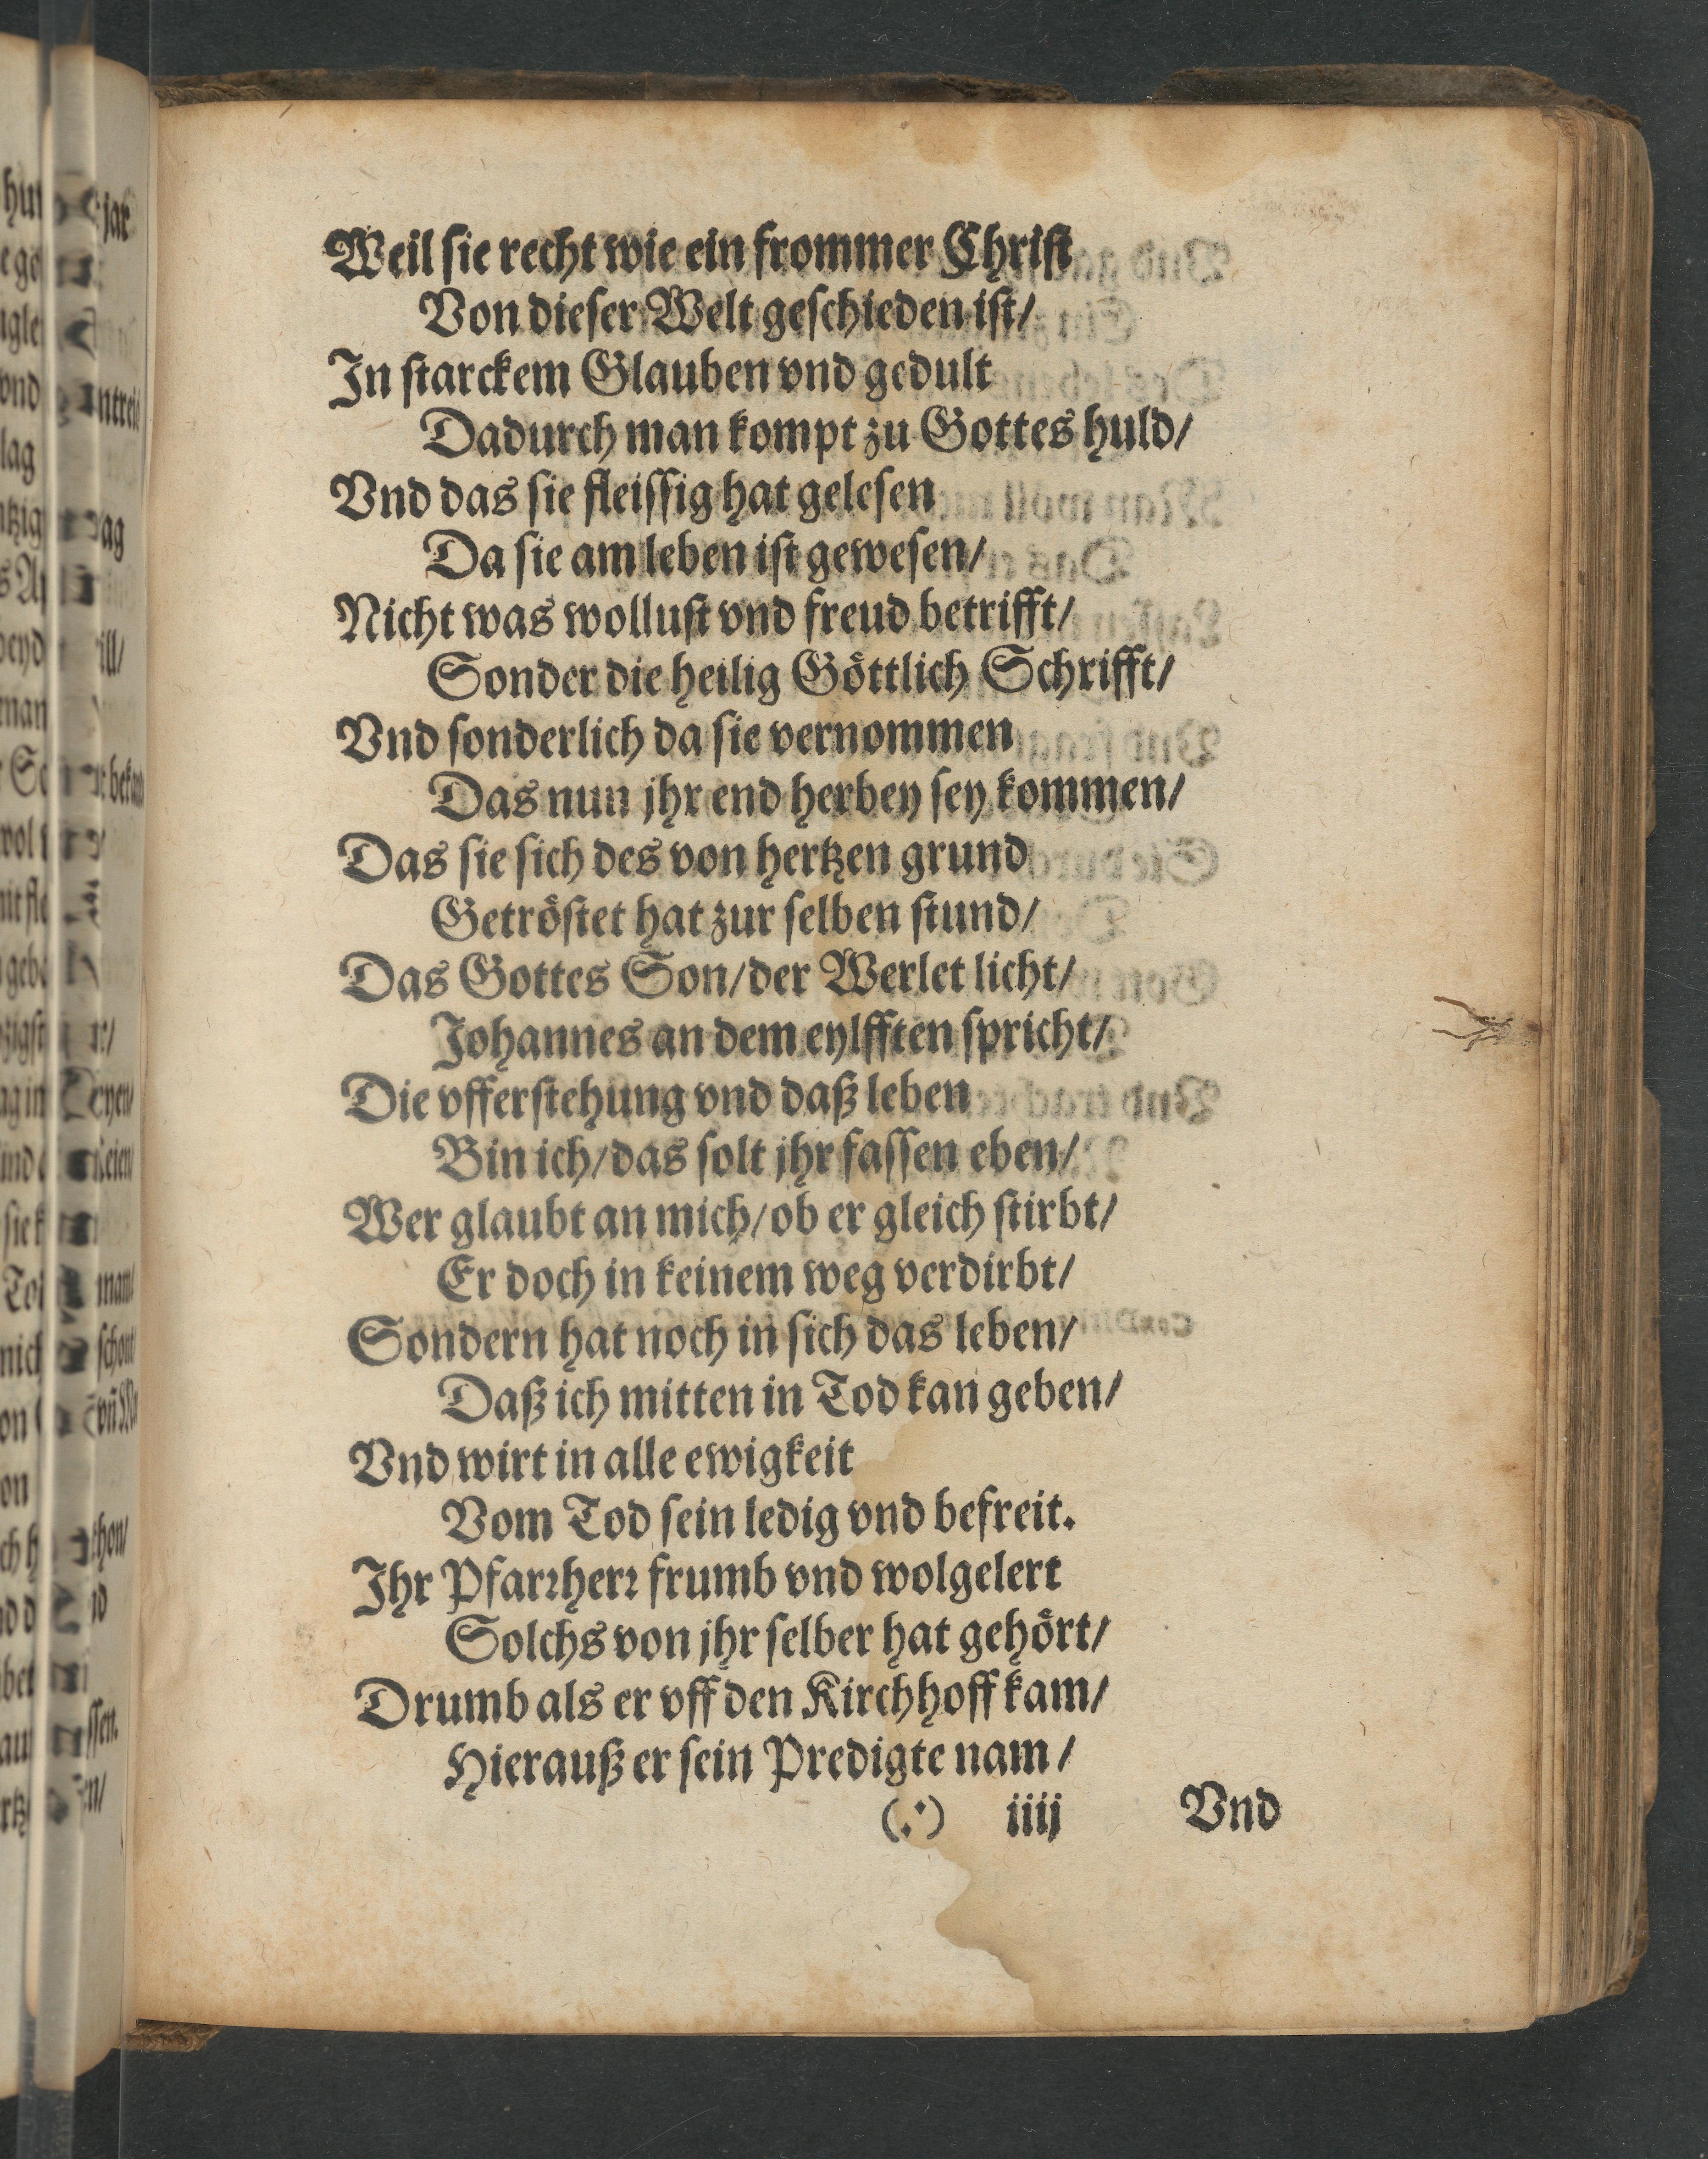 Weil sie recht wie ein frommer Christ
Von dieser Welt geschieden ist/
In starckem Glauben vnd gedult
Dadurch man kompt zu Gottes huld/
Vnd das sie fleissig hat gelesen
Da sie am leben ist gewesen/
Nicht was wollust vnd freud betrifft/
Sonder die heilig Göttlich Schrifft/
Vnd sonderlich da sie vernommen
Das nun jhr end herbey sey kommen/
Das sie sich des von hertzen grund
Getröstet hat zur selben stund/
Das Gottes Son/der Werlet licht/
Johannes an dem eylfften spricht/
Die vfferstehung vnd daß leben
Bin ich/das solt jhr fassen eben/
Wer glaubt an mich/ob er gleich stirbt/
Er doch in keinem weg verdirbt/
Sondern hat noch in sich das leben/
Daß ich mitten in Tod kan geben/
Vnd wirt in alle ewigkeit
Vom Tod sein ledig vnd befreit.
Ihr Pfarꝛherꝛ frumb vnd wolgelert
Solchs von jhr selber hat gehört/
Drumb als er vff den Kirchhoff kam/
Hierauß er sein Predigte nam/
(.·) iiij Vnd